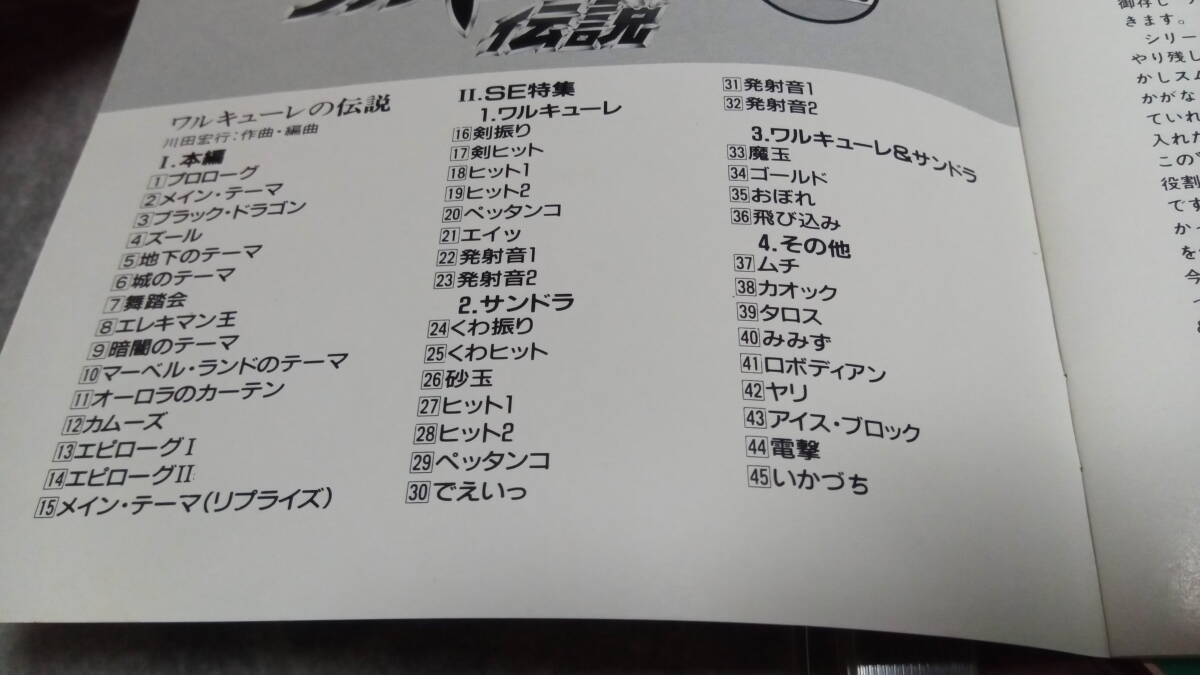 伝説
ワルキューレの伝説
川田宏行:作曲・編曲
I.本編
1プロローグ
2メイン・テーマ
3ブラック・ドラゴン
4ズール
5地下のテーマ
6城のテーマ
7舞踏会
8エレキマン王
9暗闇のテーマ
10マーベル・ランドのテーマ
11オーロラのカーテン
12カムーズ
13エピローグI
14エピローグII
15メイン・テーマ(リプライズ)
II.SE特集
1.ワルキューレ
16剣振り
17剣ヒット
18ヒット1
19ヒット2
20ペッタンコ
21エイッ
22発射音1
23発射音2
2.サンドラ
24くわ振り
25くわヒット
26砂玉
27ヒット1
28ヒット2
29ペッタンコ
30でえいっ
31発射音1
32発射音2
3.ワルキューレ&サンドラ
33魔玉
34ゴールド
35おぼれ
36飛び込み
4.その他
37ムチ
38カオック
39タロス
40みみず
41ロボディアン
42ヤリ
43アイス・ブロック
44電撃
45いかづち
きます。
シリー
やり残し
かしスム
かがな
ていれ
入れた
この
役割
です
か
を
今